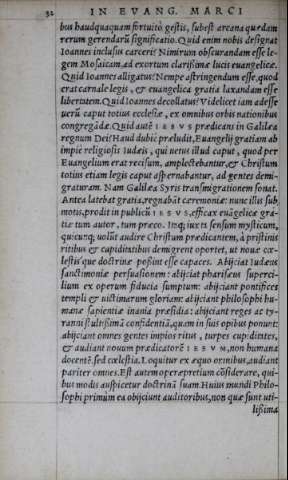 32 IN EVANG. MARCI
bus haudquaquam fortuitò gestis, subest arcana quædam
rerum gerendarũ significatio. Quid enim nobis designat
Ioannes inclusus carceri? Nimirum obscurandam esse le-
gem Mosaicam, ad exortum clarissimæ lucis euangelicæ.
Quid Ioannes alligatus? Nempe astringendum esse, quod
erat carnale legis, & euangelica gratia laxandam esse
libertatem. Quid Ioannes decollatus? Videlicet iam adesse
uerũ caput totius ecclesiæ, ex omnibus orbis nationibus
congregãdæ. Quid autē IESVS prædicans in Galilæa
regnum Dei? Haud dubiè præludit, Euangelij gratiam ab
impie religiosis Iudæis, qui uerus illud caput, quod per
Euangelium erat recisum, amplectebantur, & Christum
totius etiam legis caput aspernabantur, ad gentes demi-
graturam. Nam Galilæa Syris transmigrationem sonat.
Antea latebat gratia, regnabãt cæremoniæ: nunc illis sub
motis, prodit in publicũ IESVS, efficax euãgelicæ gra-
tiæ tum autor, tum præco. Itaq; iuxta sensum mysticum,
quicunq; uolũt audire Christum prædicantem, à pristinis
ritibus & cupiditatibus demigrent oportet, ut nouæ cœ-
lestisq́ue doctrinæ possint esse capaces. Abijciat Iudæus
sanctimoniæ persuasionem: abijciat phariseus superci-
lium ex operum fiducia sumptum: abijciant pontifices
templi & uictimarum gloriam: abijciant philosophi hu-
manæ sapientiæ inania præsidia: abijciant reges ac ty-
ranni stultissimã confidentiã, quam in suis opibus ponunt:
abijciant omnes gentes impios ritus, turpes cupiditates,
& audiant nouum prædicatorē IESVM, non humana
docentē, sed cœlestia. Loquitur ex æquo omnibus, audiant
pariter omnes. Est autem operæpretium cõsiderare, qui-
bus modis auspicetur doctrinã suam. Huius mundi Philo-
sophi primùm ea obijciunt auditoribus, non quæ sunt uti-
lissima